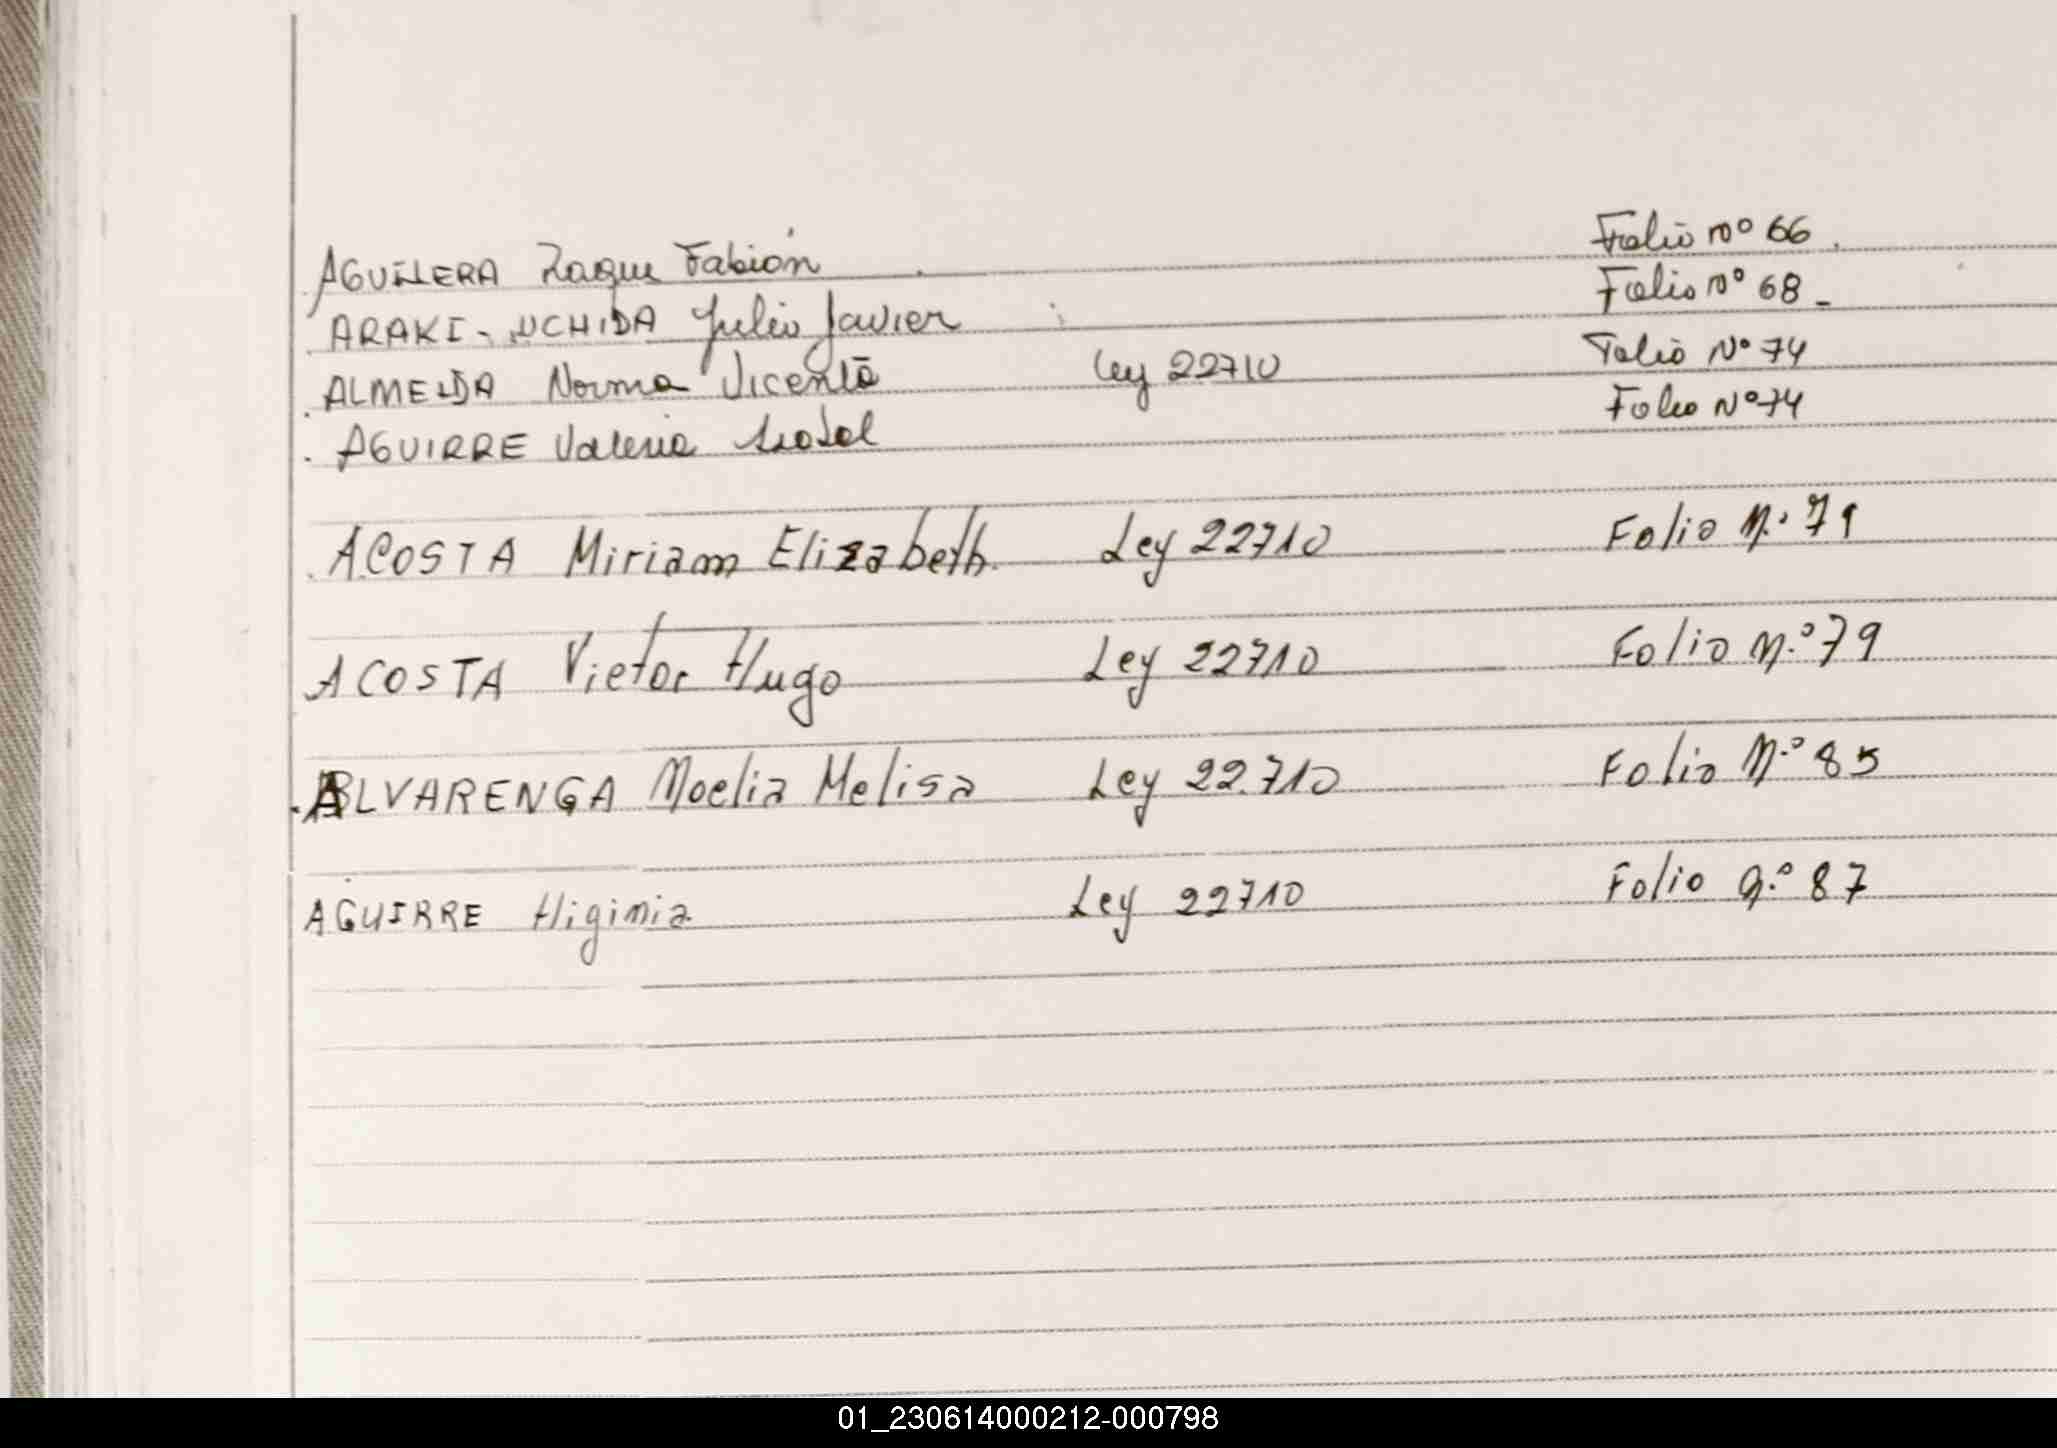 AGUILERA Raque Fabián Folio nº 66.
ARAKI-UCHIDA Julio Javier Folio nº 68-
ALMEIDA Norma Vicenta Ley 22710 Folio Nº 74
AGUIRRE Valeria Folio Nº 74
ACOSTA Miriam Elizabeth. Ley 22710 Folio N.º 79
ACOSTA Victor Hugo Ley 22710 Folio N.º 79
ALVARENGA Noelia Melisa Ley 22.710 Folio N.º 85
AGUIRRE Higinia Ley 22710 Folio n.º 87
01_230614000212-000798